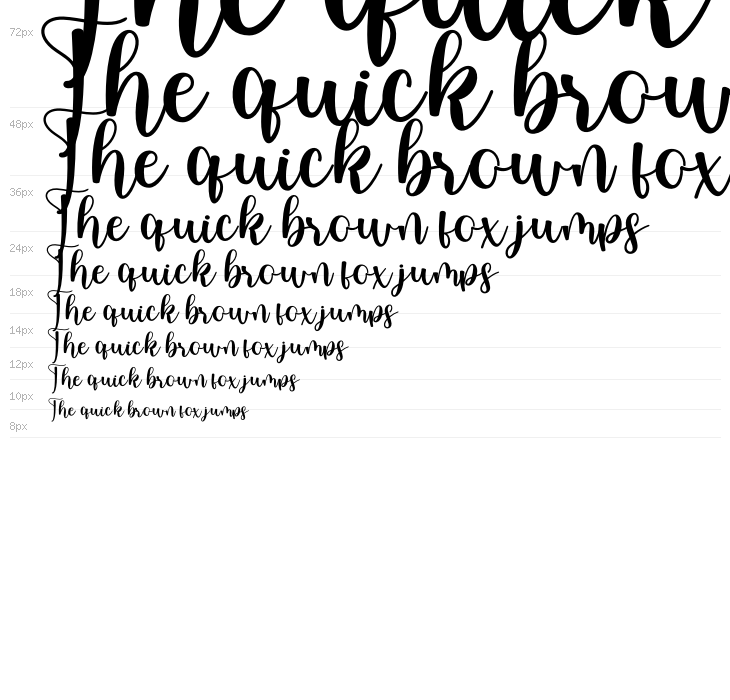 72px The quick
48px The quick brow
36px The quick brown fox
24px The quick brown fox jumps
18px The quick brown fox jumps
14px The quick brown fox jumps
12px The quick brown fox jumps
10px The quick brown fox jumps
8px The quick brown fox jumps